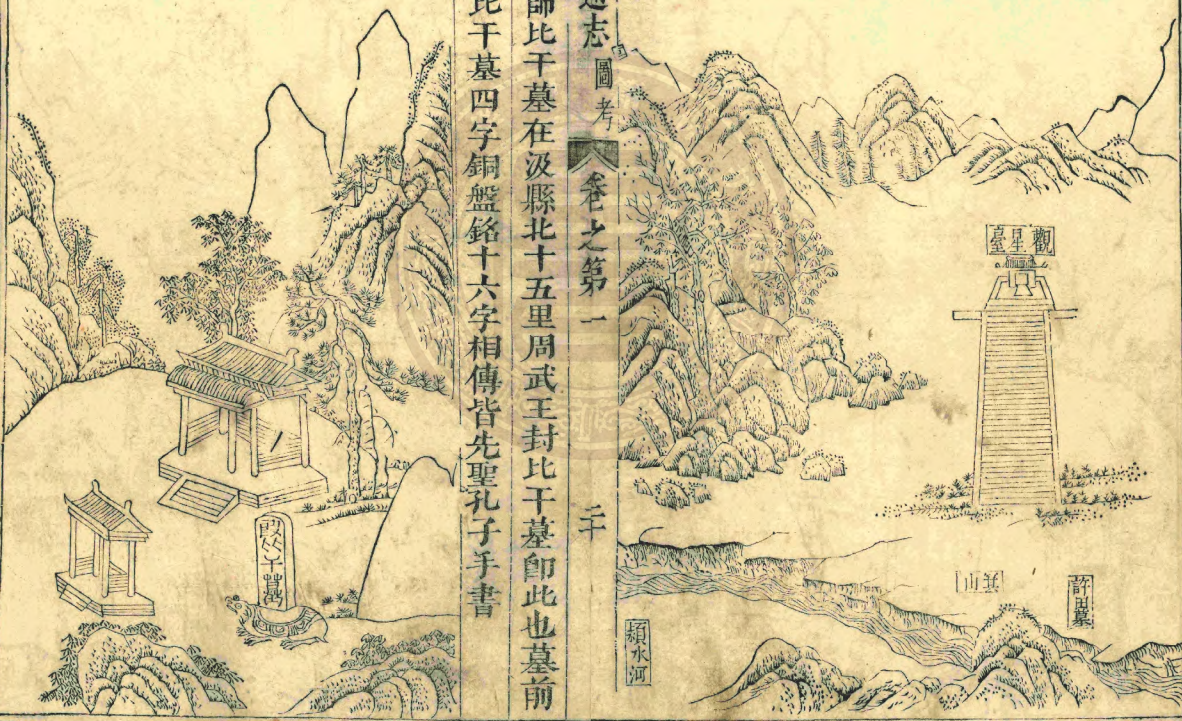 觀星臺
箕山
許由墓
潁水河
志 圖考 卷之第一 二十
師比干墓在汲縣北十五里周武王封比干墓卽此也墓前
比干墓四字銅盤銘十六字相傳皆先聖孔子手書
殷比干墓